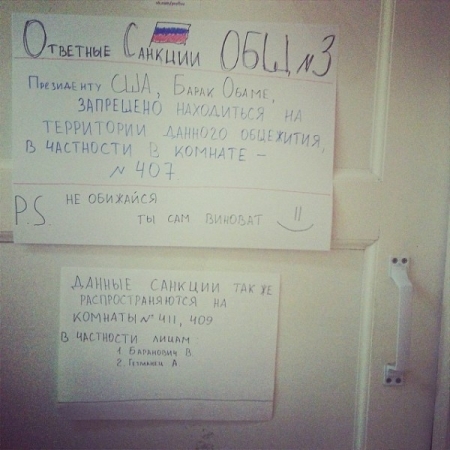 Ответные Санкции ОБЩ №3
Президенту США, Барак Обаме,
ЗАПРЕЩЕНО НАХОДИТЬСЯ НА
ТЕРРИТОРИИ ДАННОГО ОБЩЕЖИТИЯ,
В ЧАСТНОСТИ В КОМНАТЕ –
№ 407
P.S. НЕ ОБИЖАЙСЯ
ТЫ САМ ВИНОВАТ =)
ДАННЫЕ САНКЦИИ ТАК ЖЕ
РАСПРОСТРАНЯЮТСЯ НА
КОМНАТЫ № 411, 409
В ЧАСТНОСТИ ЛИЦАМ
1. Баранович В.
2. А